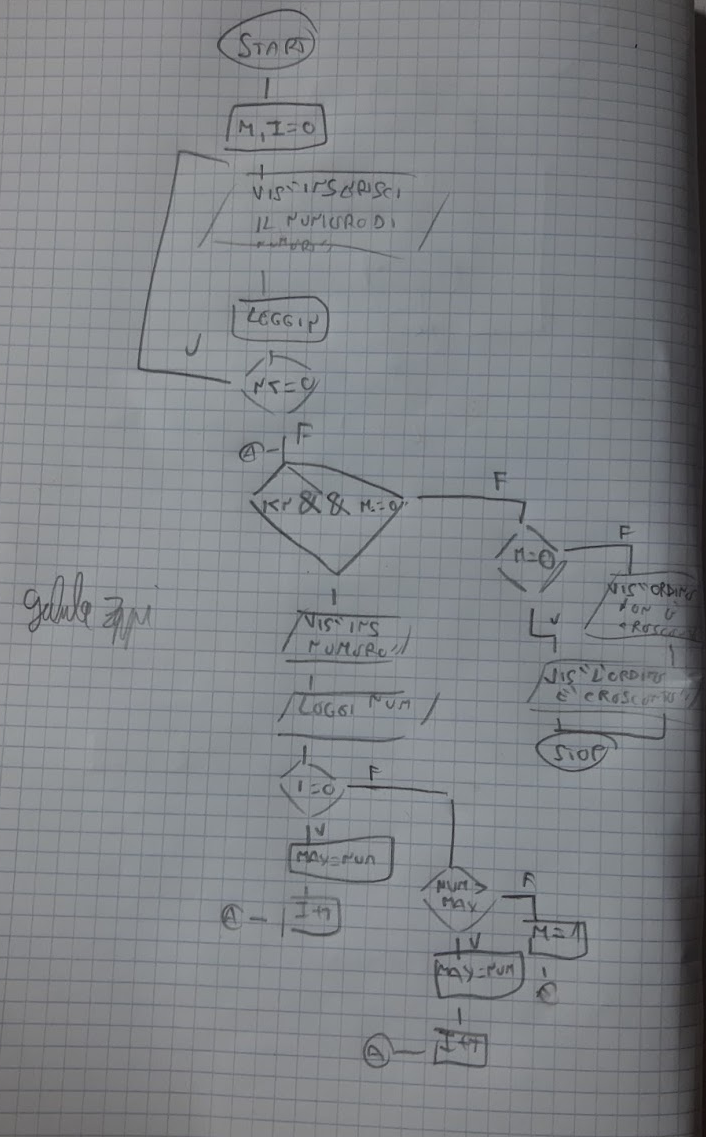 START
M, I=0
VIS "INSERISCI
IL NUMERO DI
NUMERI
LEGGI N
V
N<=0
F
A
I<N && M=0
F
M=0
F
V
VIS "ORDINE
NON È
CRESCENTE
VIS "L'ORDINE
È CRESCENTE"
STOP
VIS "INS
NUMERO"
LEGGI NUM
I=0
F
V
MAX=NUM
A
I++
NUM>
MAX
F
M=1
V
MAX=NUM
A
I++